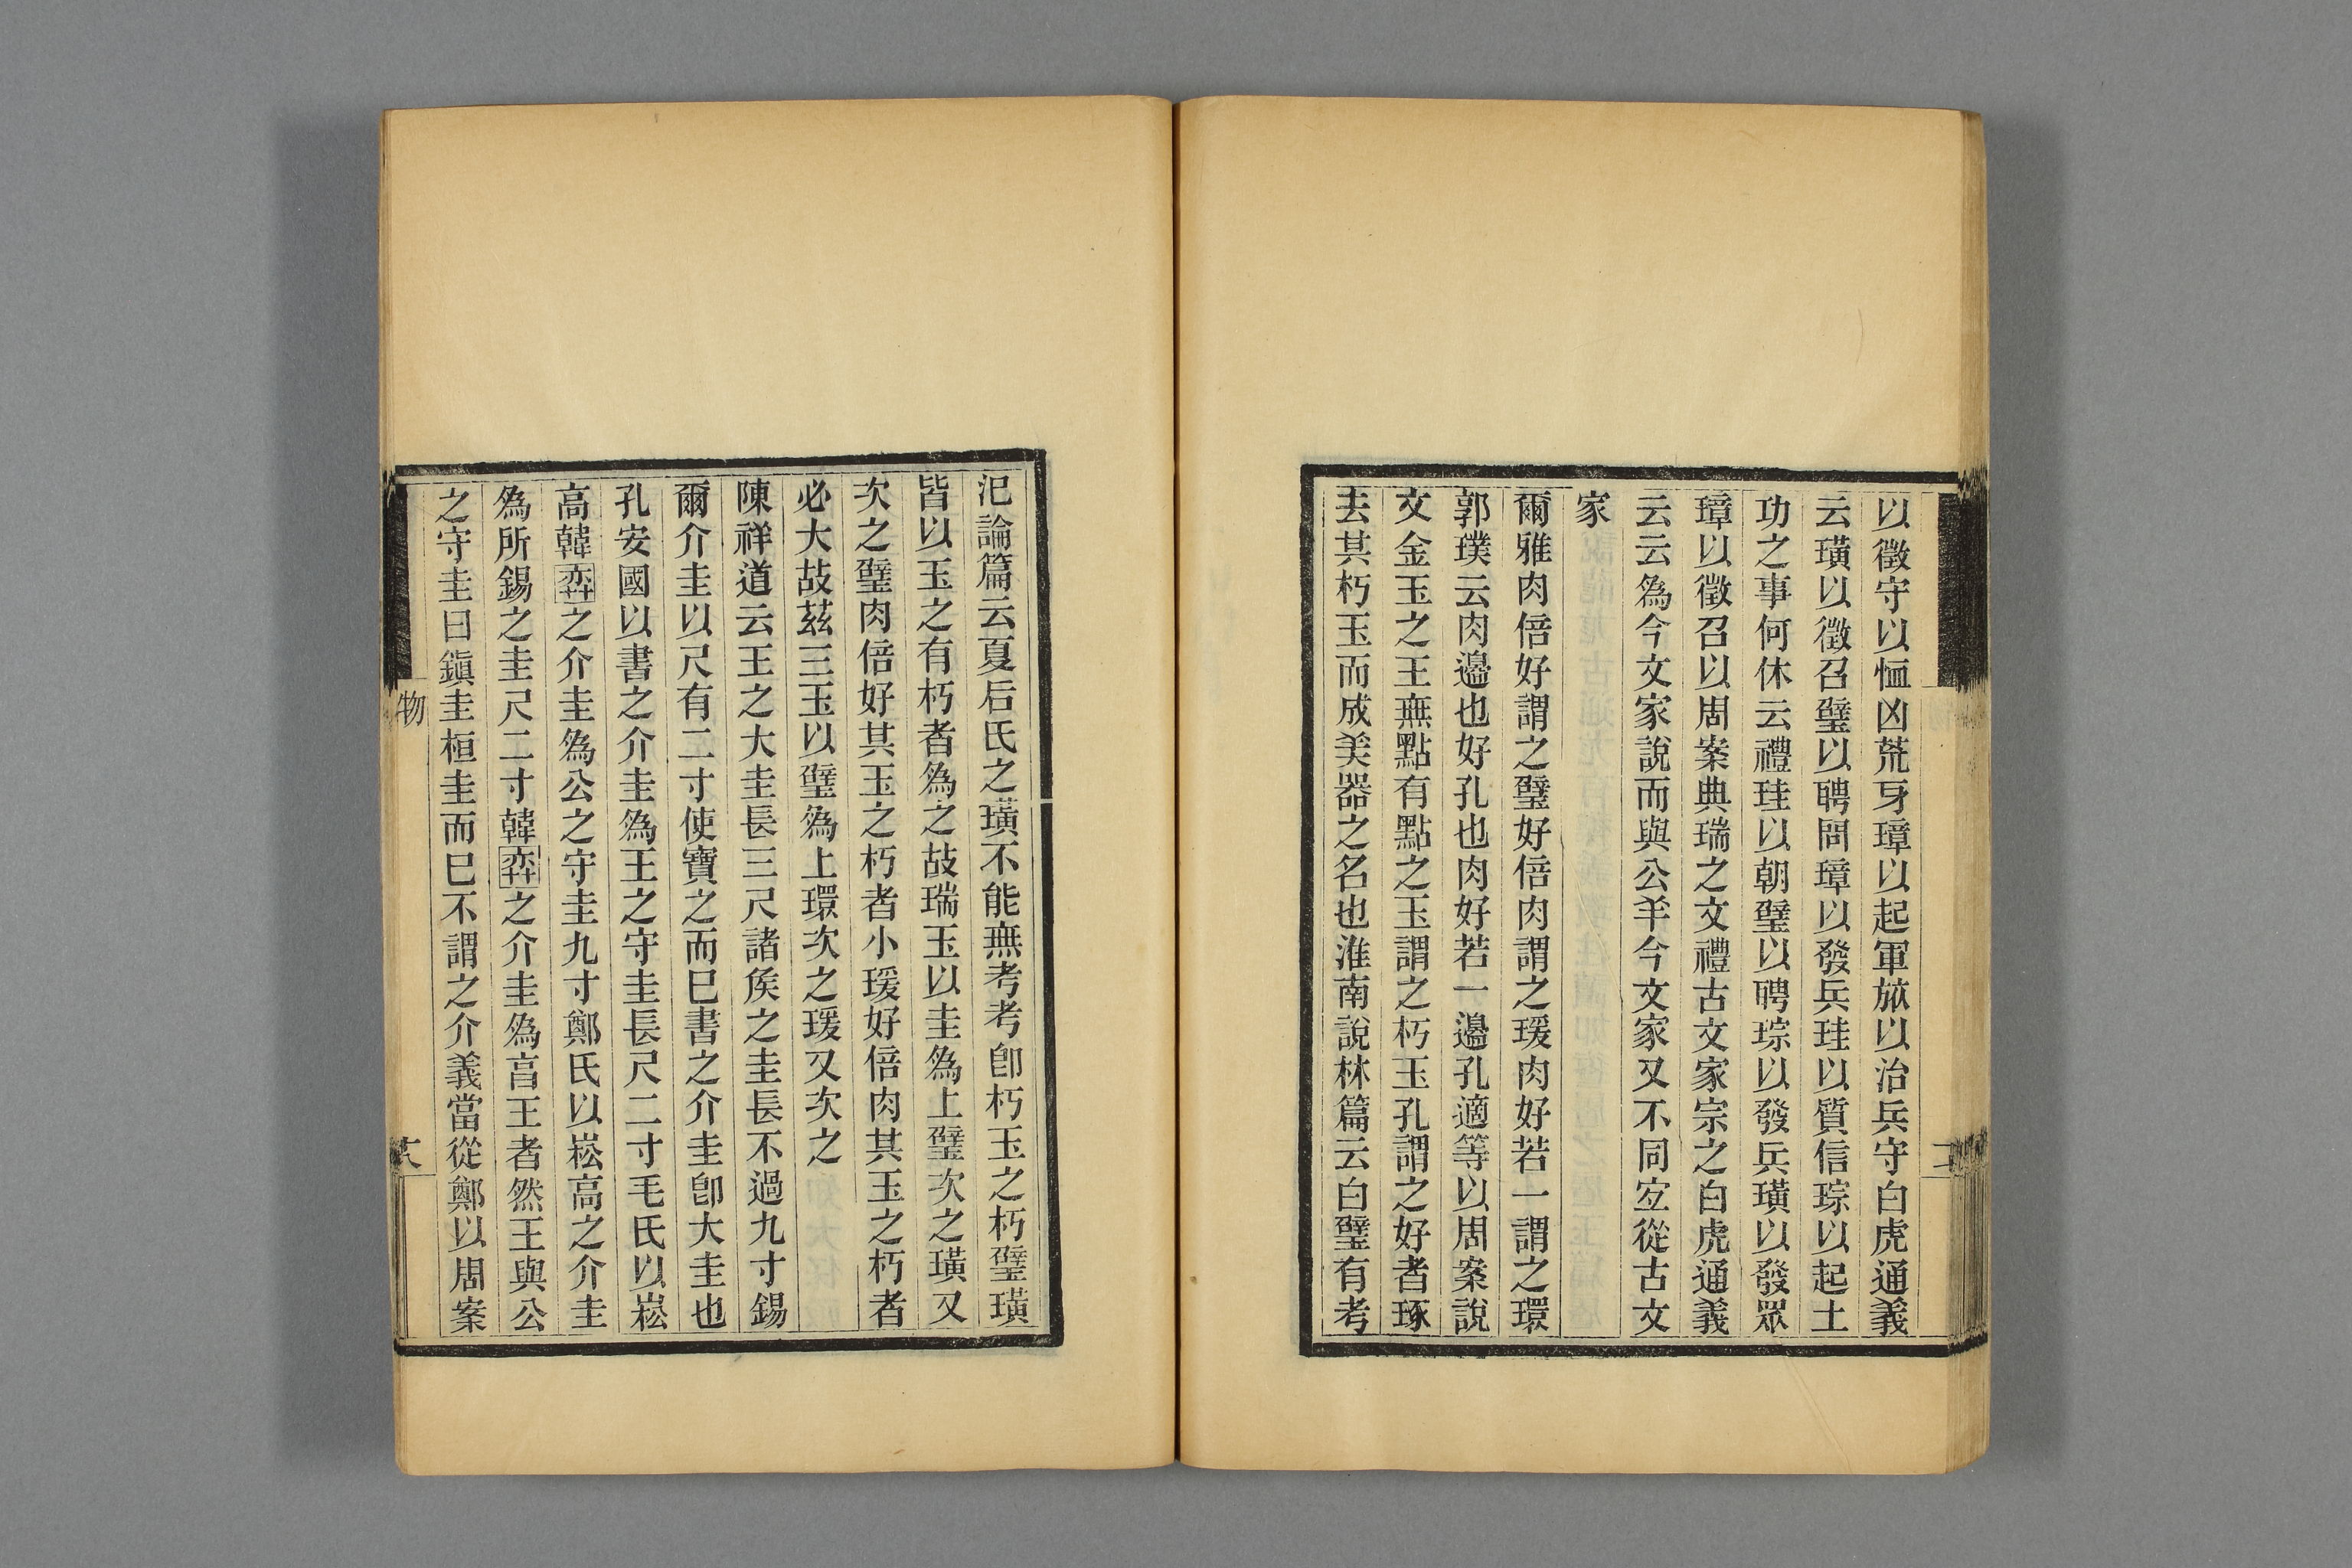 以徵守以恤凶荒牙璋以起軍旅以治兵守白虎通義
云璜以徵召璧以聘問璋以發兵珪以質信琮以起土
功之事何休云禮珪以朝璧以聘琮以發兵璜以發眾
璋以徵召以周案典瑞之文禮古文家宗之白虎通義
云云為今文家說而與公羊今文家又不同宐從古文
家
爾雅肉倍好謂之璧好倍肉謂之瑗肉好若一謂之環
郭璞云肉邊也好孔也肉好若一邊孔適等以周案說
文金玉之王無點有點之玉謂之朽玉孔謂之好者琢
去其朽玉而成美器之名也淮南說林篇云白璧有考
氾論篇云夏后氏之璜不能無考考卽朽玉之朽璧璜
皆以玉之有朽者為之故瑞玉以圭為上璧次之璜又
次之璧肉倍好其玉之朽者小瑗好倍肉其玉之朽者
必大故茲三玉以璧為上環次之瑗又次之
陳祥道云王之大圭長三尺諸侯之圭長不過九寸錫
爾介圭以尺有二寸使寶之而已書之介圭卽大圭也
孔安國以書之介圭為王之守圭長尺二寸毛氏以崧
高韓奕之介圭為公之守圭九寸鄭氏以崧高之介圭
為所錫之圭尺二寸韓奕之介圭為亯王者然王與公
之守圭曰鎭圭桓圭而已不謂之介義當從鄭以周案
物